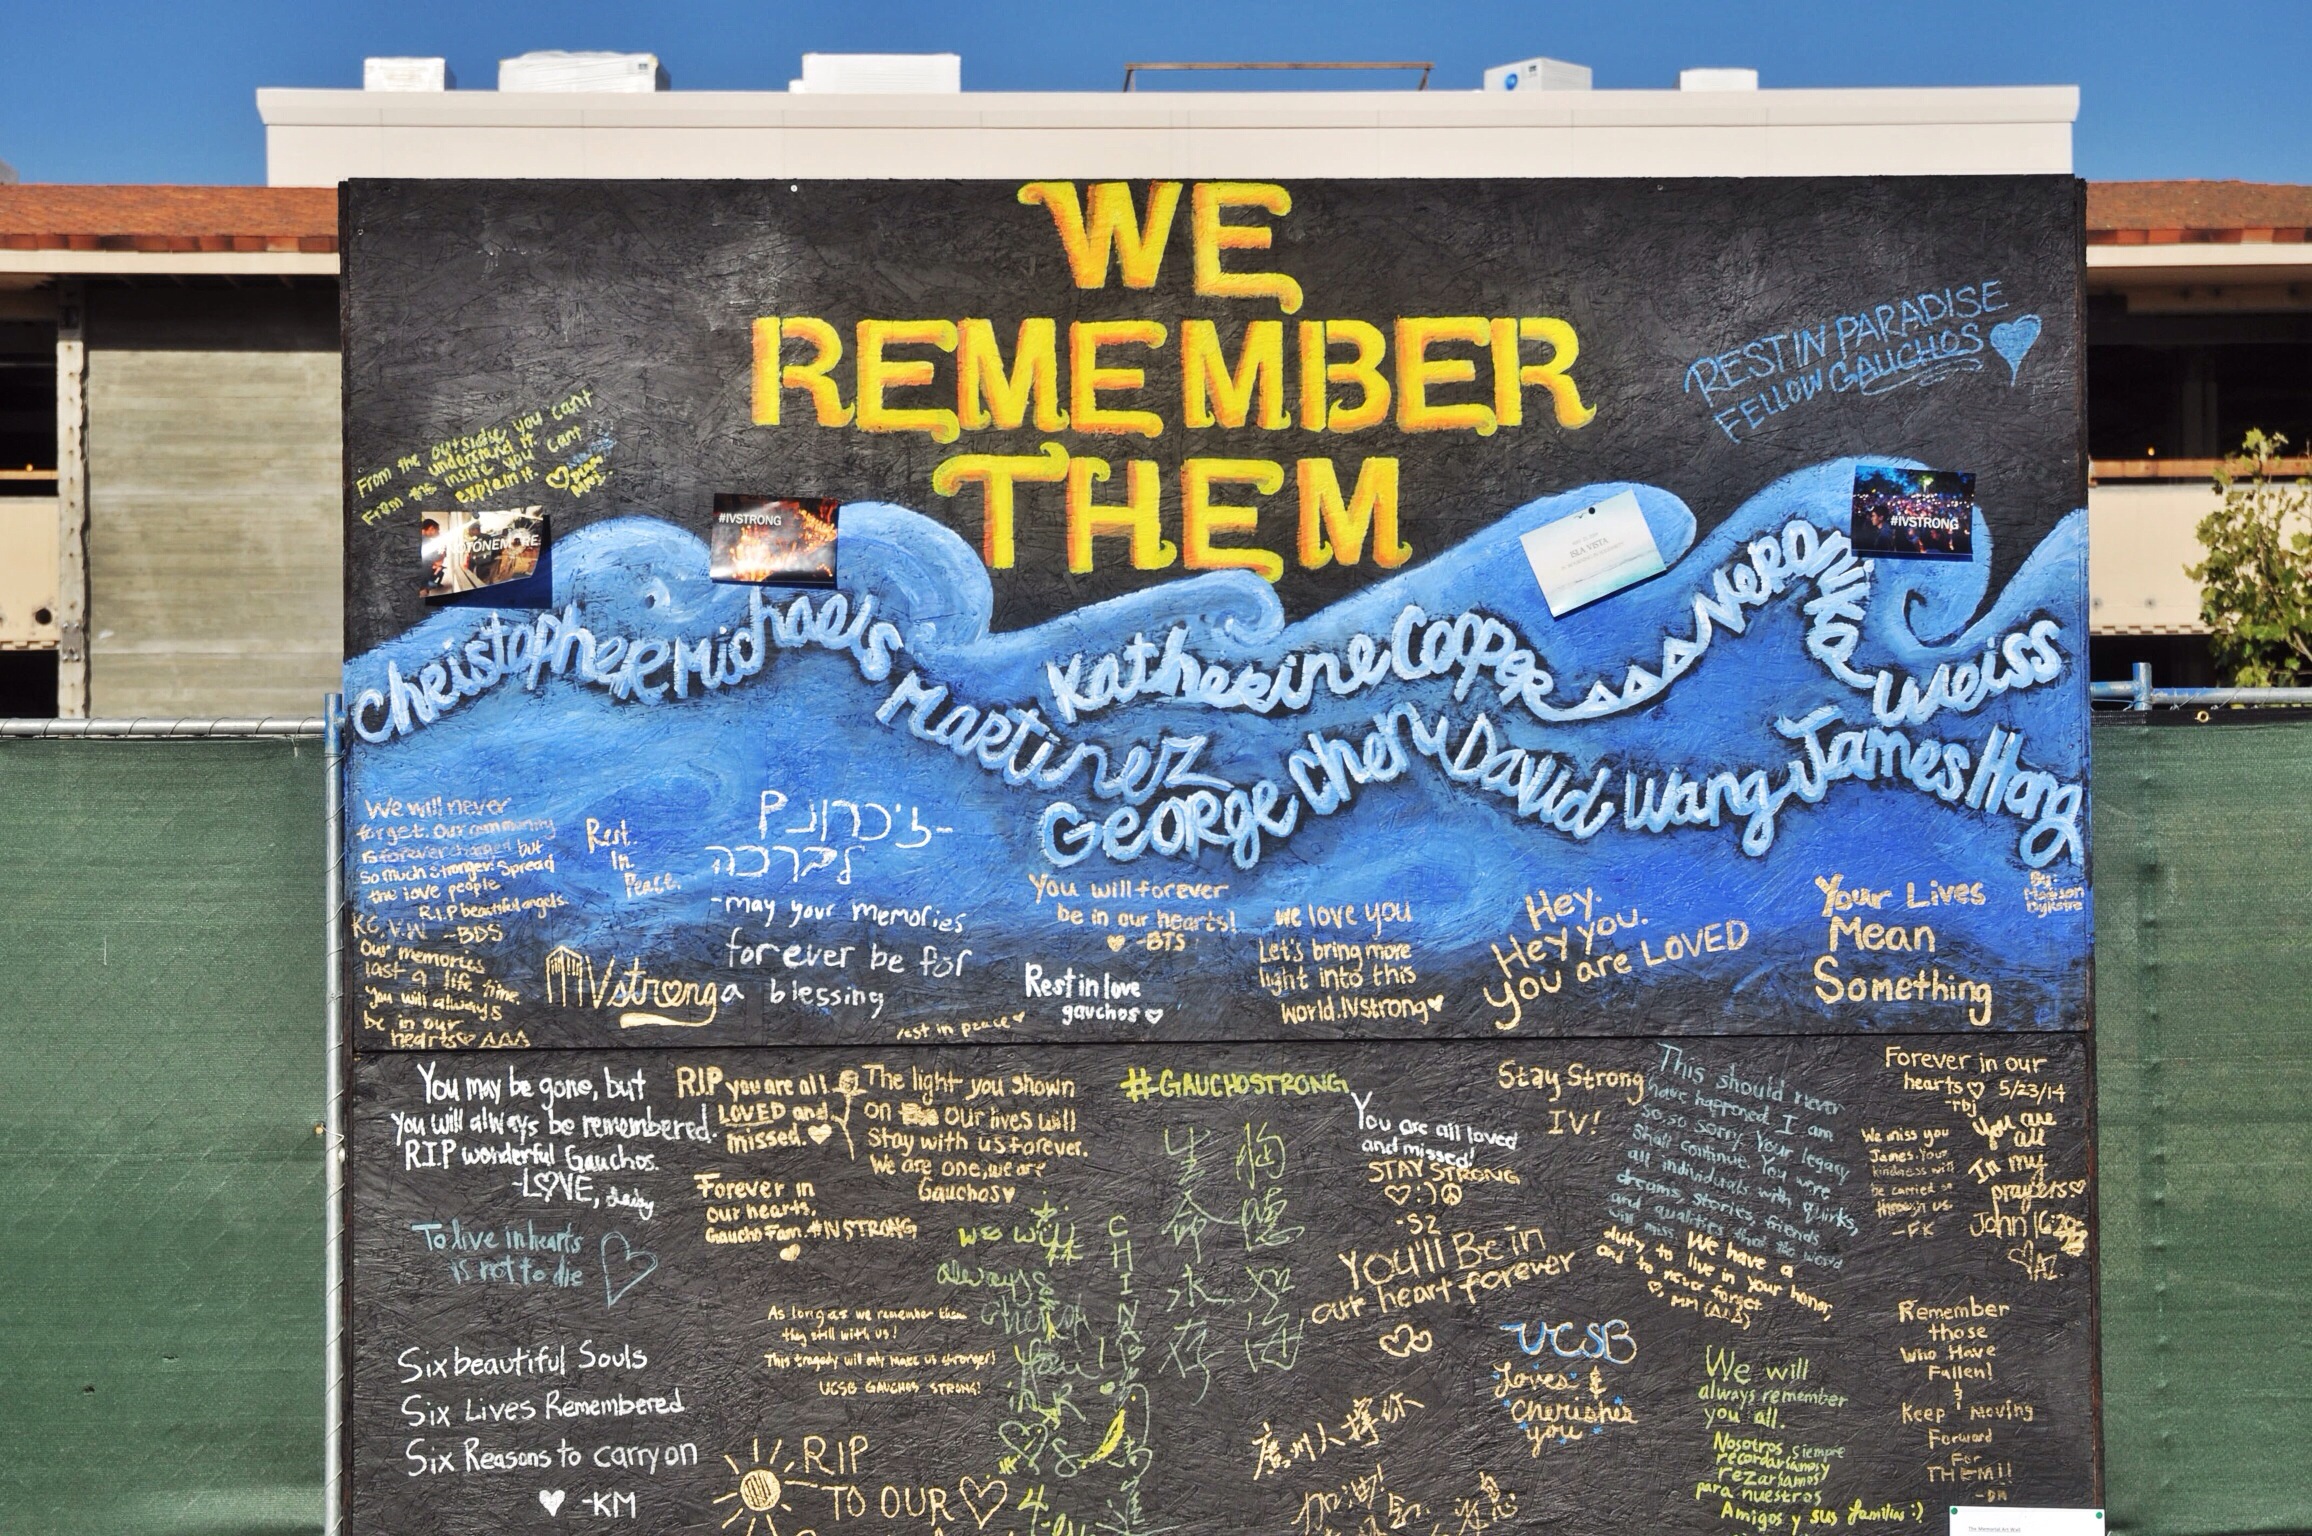 WE
REMEMBER
THEM
REST IN PARADISE
FELLOW GAUCHOS
From the outside, you cant
understand it.
From the inside you cant
explain it.
#IVSTRONG
ISLA VISTA
#IVSTRONG
Christopher Michaels
Martinez
Katherine Cooper
Veronika
Weiss
George Chen
David Wang
James Hong
By:
Madison
Dykstra
We will never
forget. Our community
is forever changed but
so much stronger. Spread
the love people
R.I.P beautiful angels.
KC, VW -BDS
Our memories
last a life time.
You will always
be in our
hearts ΔΔΔ
Rest
In
Peace.
IVstrong
זיכרונם
לברכה
-may your memories
forever be for
a blessing
rest in peace
You will forever
be in our hearts!
-BTS
Rest in love
gauchos
we love you
Let's bring more
light into this
world. IVstrong
Hey.
Hey you.
you are LOVED
Your Lives
Mean
Something
You may be gone, but
You will always be remembered.
R.I.P wonderful Gauchos.
-LOVE,
R.I.P you are all
LOVED and
missed.
The light you shown
on our lives will
stay with us forever.
We are one, we are
Gauchos
Forever in
our hearts.
Gaucho Fam. #IVSTRONG
To live in hearts
is not to die
As long as we remember them
they still with us!
This tragedy will only make us stronger!
UCSB GAUCHOS STRONG!
Six beautiful Souls
Six Lives Remembered
Six Reasons to carry on
-KM
RIP
TO OUR
#GAUCHOSTRONG
we will
always
CHINA
生命永存
You are all loved
and missed!
STAY STRONG
:)
-SZ
You'll Be in
our heart forever
广州人撑你
加油!
Stay Strong
IV!
This should never
have happened. I am
so, so sorry. Your legacy
shall continue. You were
all individuals with quirks,
dreams, stories, friends
and qualities that the world
will miss.
We have a
duty to live in your honor,
and to never forget
MM (ΔΔΔ)
UCSB
Loves &
Cherishes
you
Forever in our
hearts 5/23/14
-TBJ
We miss you
James. Your
kindness will
be carried on
through us.
-FK
You are
all
In my
prayers
John 16:22
AZ
Remember
those
Who Have
Fallen!
&
Keep Moving
Forward
For
THEM!!
-DM
We will
always remember
you all.
Nosotros siempre
recordaríamos y
rezaríamos
para nuestros
Amigos y sus familias :)
The Memorial Art Wall